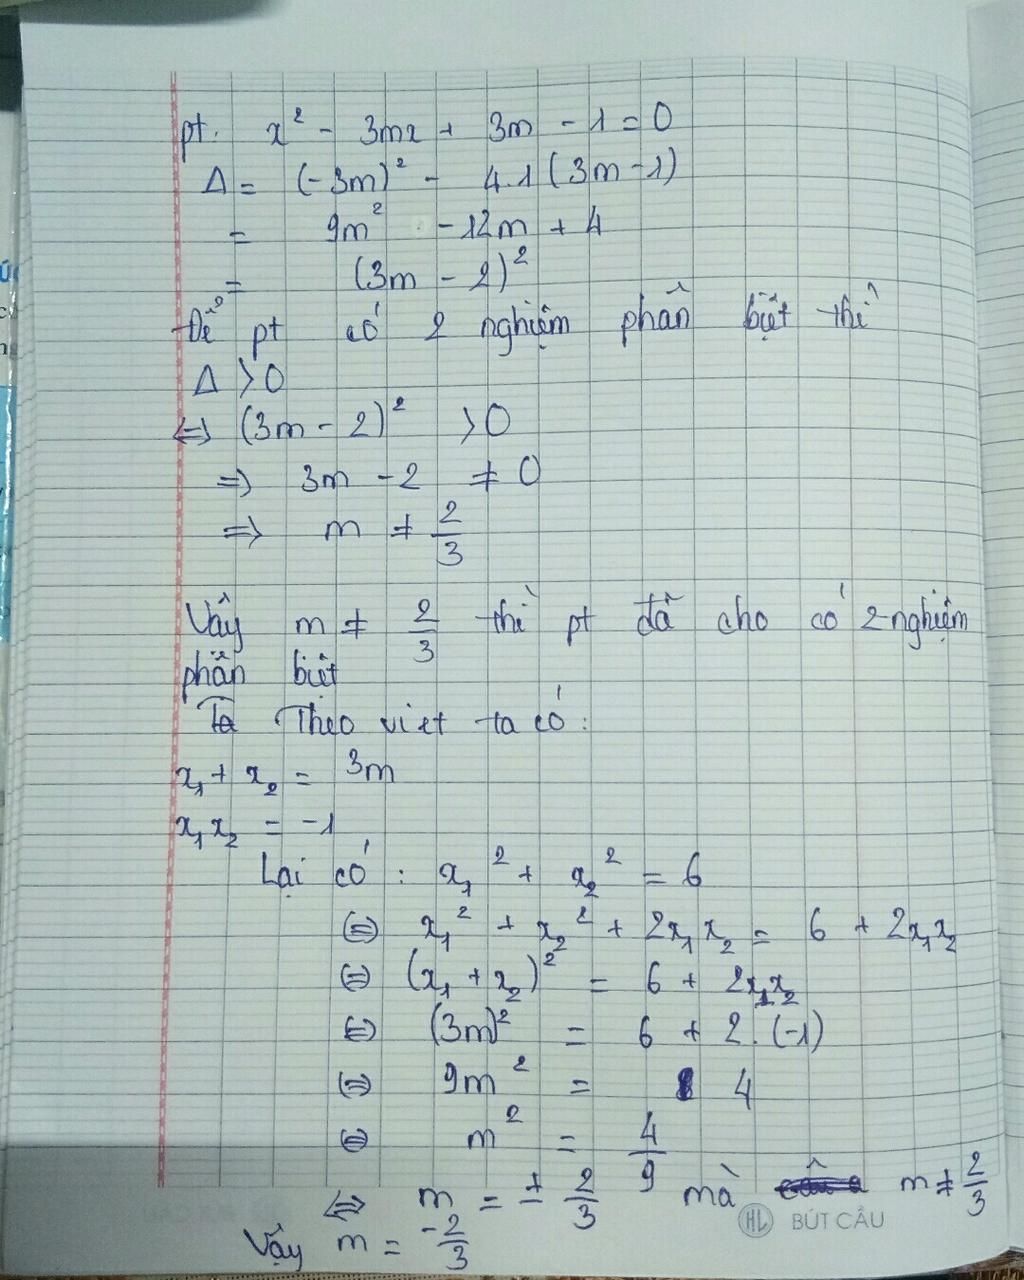 pt. x² - 3mx + 3m - 1 = 0
Δ = (-3m)² - 4.1(3m-1)
= 9m² - 12m + 4
= (3m - 2)²
Để pt có 2 nghiệm phân biệt thì
Δ > 0
⇔ (3m - 2)² > 0
⇒ 3m - 2 ≠ 0
⇒ m ≠ 2/3
Vậy m ≠ 2/3 thì pt đã cho có 2 nghiệm
phân biệt
Ta Theo viet ta có:
x₁ + x₂ = 3m
x₁x₂ = -1
Lại có : x₁² + x₂² = 6
⇔ x₁² + x₂² + 2x₁x₂ = 6 + 2x₁x₂
⇔ (x₁ + x₂)² = 6 + 2x₁x₂
⇔ (3m)² = 6 + 2.(-1)
⇔ 9m² = 4
⇔ m² = 4/9
⇔ m = ± 2/3 mà m ≠ 2/3
Vậy m = -2/3
HL BÚT CẦU